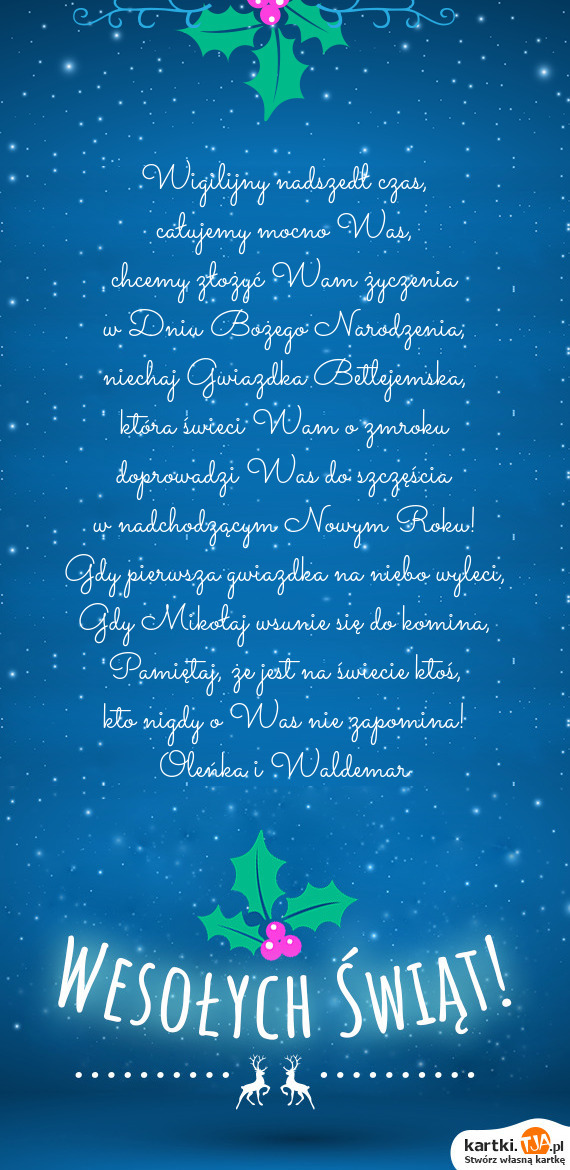 Wigilijny nadszedł czas,
całujemy mocno Was,
chcemy złożyć Wam życzenia
w Dniu Bożego Narodzenia;
niechaj Gwiazdka Betlejemska,
która świeci Wam o zmroku
doprowadzi Was do szczęścia
w nadchodzącym Nowym Roku!
Gdy pierwsza gwiazdka na niebo wyleci,
Gdy Mikołaj wsunie się do komina,
Pamiętaj, że jest na świecie ktoś,
kto nigdy o Was nie zapomina!
Oleńka i Waldemar
Wesołych Świąt!
kartki.TJA.pl
Stwórz własną kartkę